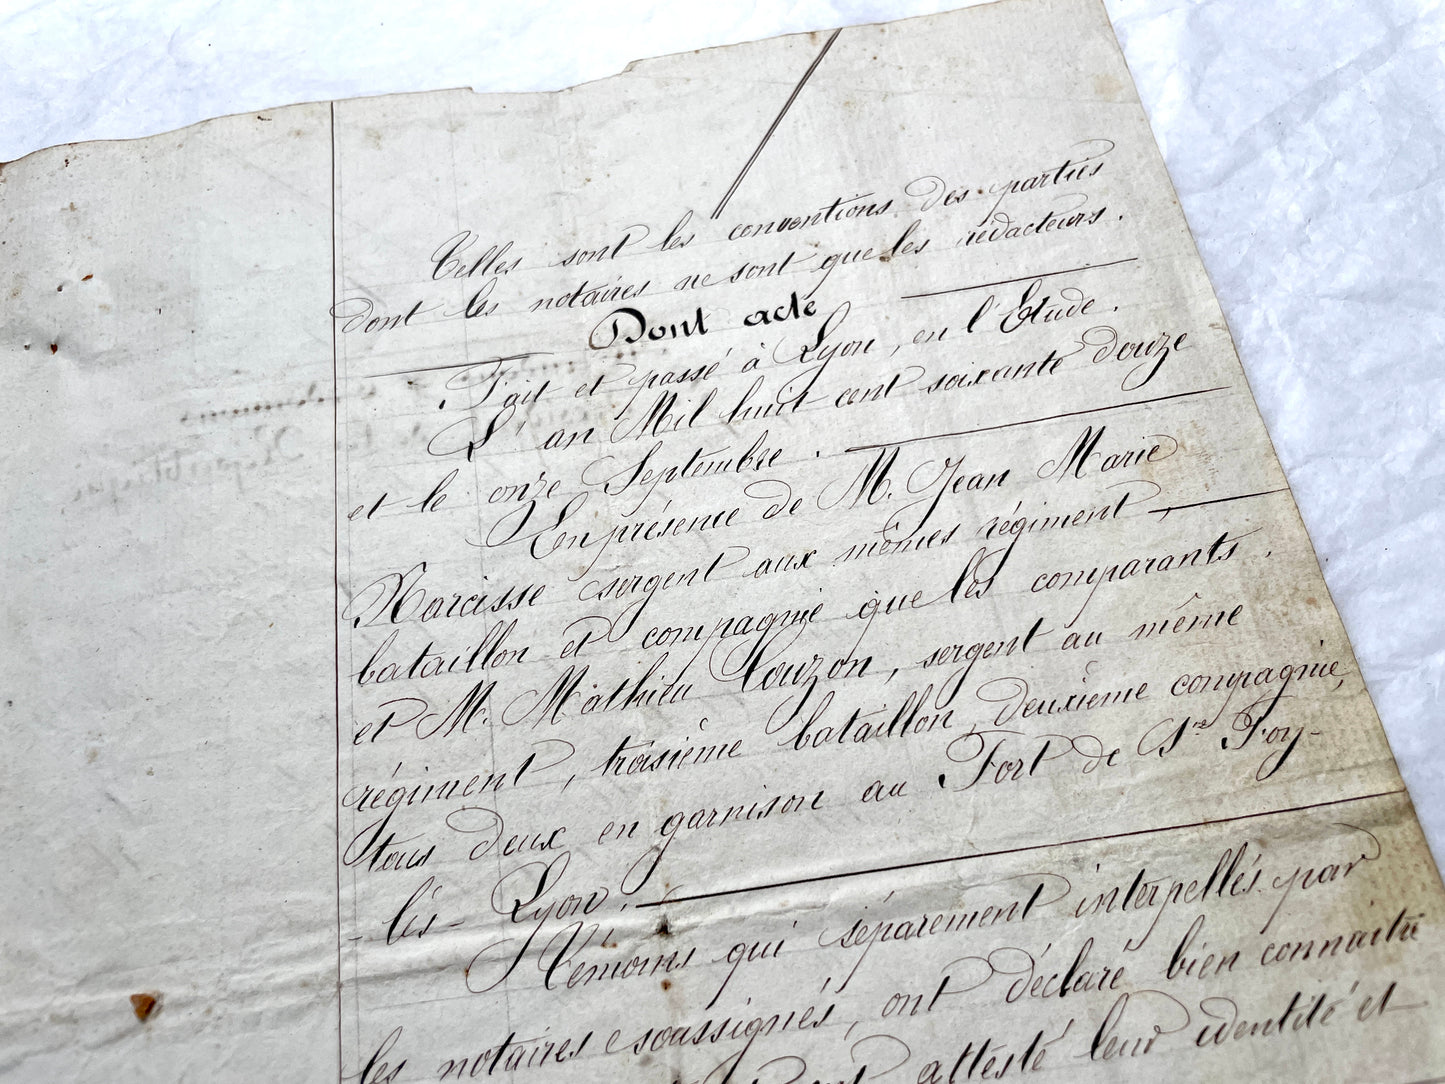 Telles sont les conventions des parties
dont les notaires ne sont que les rédacteurs.
Dont acte
Fait et passé à Lyon, en l'Etude.
L'an Mil huit cent soixante douze
et le onze Septembre.
En présence de M. Jean Marie
Narcisse sergent aux mêmes régiment,
bataillon et compagnie que les comparants.
et M. Mathieu Couzon, sergent au même
régiment, troisième bataillon, deuxième compagnie,
tous deux en garnison au Fort de Ste Foy-
-lès-Lyon.
Témoins qui séparément interpellés par
les notaires soussignés, ont déclaré bien connaitre
attesté leur identité et